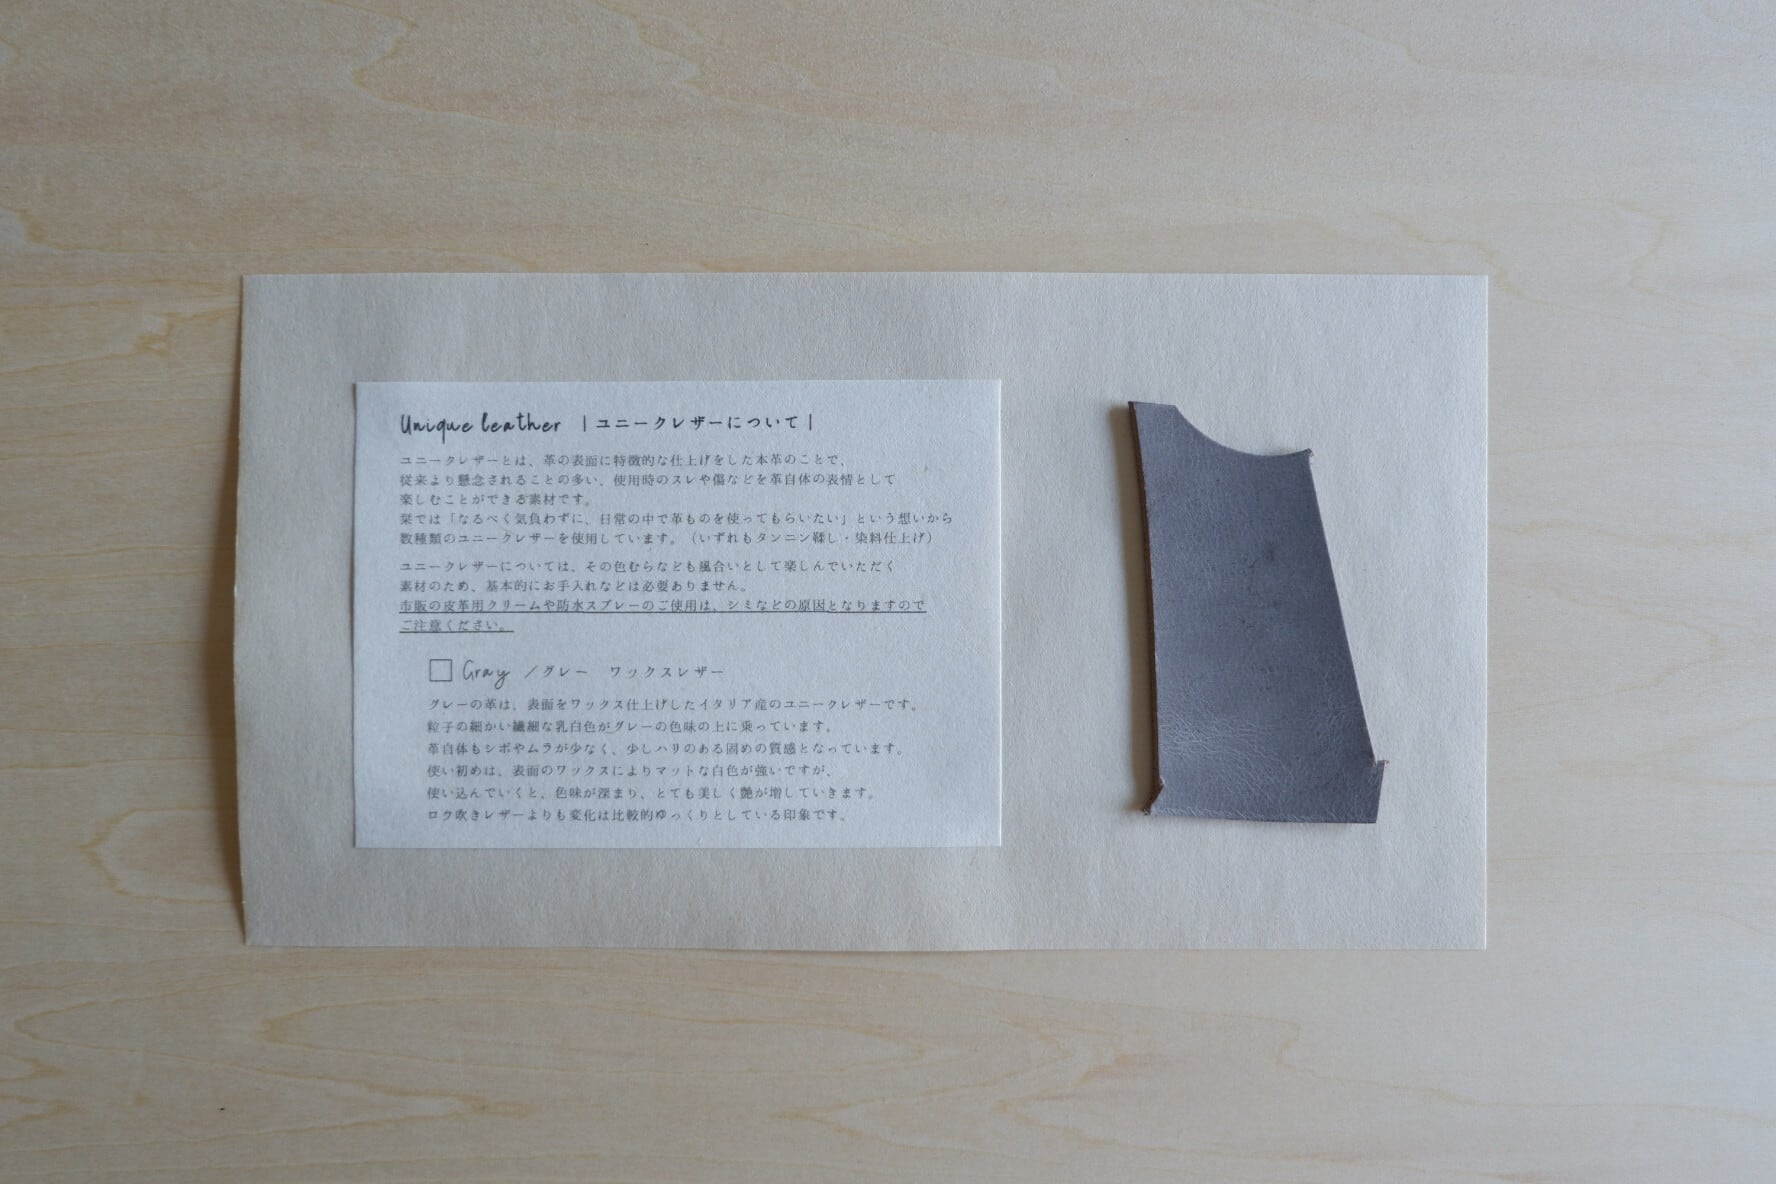 Unique leather |ユニークレザーについて|
ユニークレザーとは、革の表面に特徴的な仕上げをした本革のことで、
従来より懸念されることの多い、使用時のスレや傷などを革自体の表情として
楽しむことができる素材です。
栞では「なるべく気負わずに、日常の中で革ものを使ってもらいたい」という想いから
数種類のユニークレザーを使用しています。（いずれもタンニン鞣し・染料仕上げ）
ユニークレザーについては、その色むらなども風合いとして楽しんでいただく
素材のため、基本的にお手入れなどは必要ありません。
市販の皮革用クリームや防水スプレーのご使用は、シミなどの原因となりますので
ご注意ください。
□ Gray ／グレー ワックスレザー
グレーの革は、表面をワックス仕上げしたイタリア産のユニークレザーです。
粒子の細かい繊細な乳白色がグレーの色味の上に乗っています。
革自体もシボやムラが少なく、少しハリのある固めの質感となっています。
使い初めは、表面のワックスによりマットな白色が強いですが、
使い込んでいくと、色味が深まり、とても美しく艶が増していきます。
ロウ吹きレザーよりも変化は比較的ゆっくりとしている印象です。